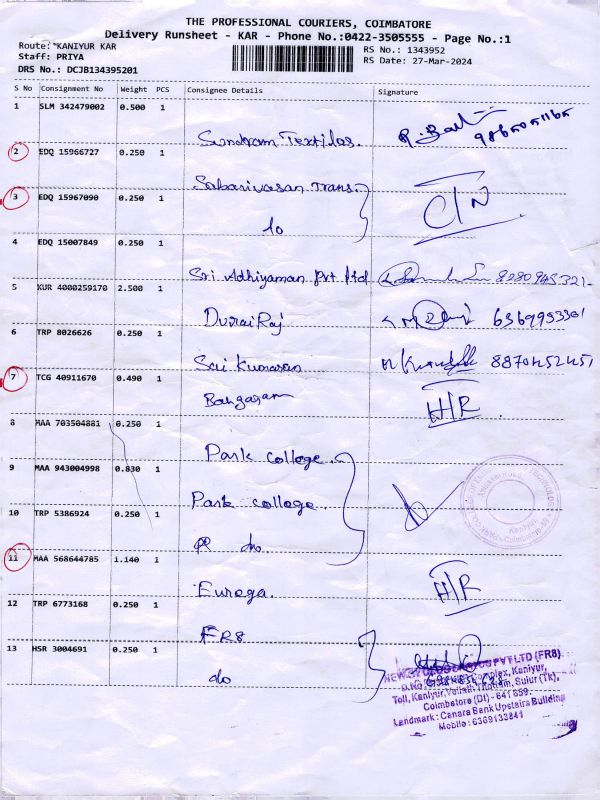 THE PROFESSIONAL COURIERS, COIMBATORE
Delivery Runsheet - KAR - Phone No.:0422-3505555 - Page No.:1
Route: KANIYUR KAR
RS No.: 1343952
Staff: PRIYA
RS Date: 27-Mar-2024
DRS No.: DCJB134395201
S No Consignment No Weight PCS Consignee Details Signature
1 SLM 342479002 0.500 1
Sundram Textiles.
2 EDQ 15966727 0.250 1
Sabarivasan Trans.
3 EDQ 15967090 0.250 1
do
C/N
4 EDQ 15007849 0.250 1
Sri Adhiyaman Pvt ltd
5 KUR 4000259170 2.500 1
Durai Raj
6369953301
6 TRP 8026626 0.250 1
Sai Kumaran
8870452451
7 TCG 40911670 0.490 1
H/R
8 MAA 703504881 0.250 1
Park college.
9 MAA 943004998 0.830 1
Park college.
10 TRP 5386924 0.250 1
do
11 MAA 568644785 1.140 1
Euroga.
H/R
12 TRP 6773168 0.250 1
FR8
13 HSR 3004691 0.250 1
do
PVT LTD (FR8)
Complex, Kaniyur,
Toll, Kaniyur, Thottam, Sulur (Tk),
Coimbatore (Dt) - 641 659.
Landmark: Canara Bank Upstairs Building
Mobile: 6369133841